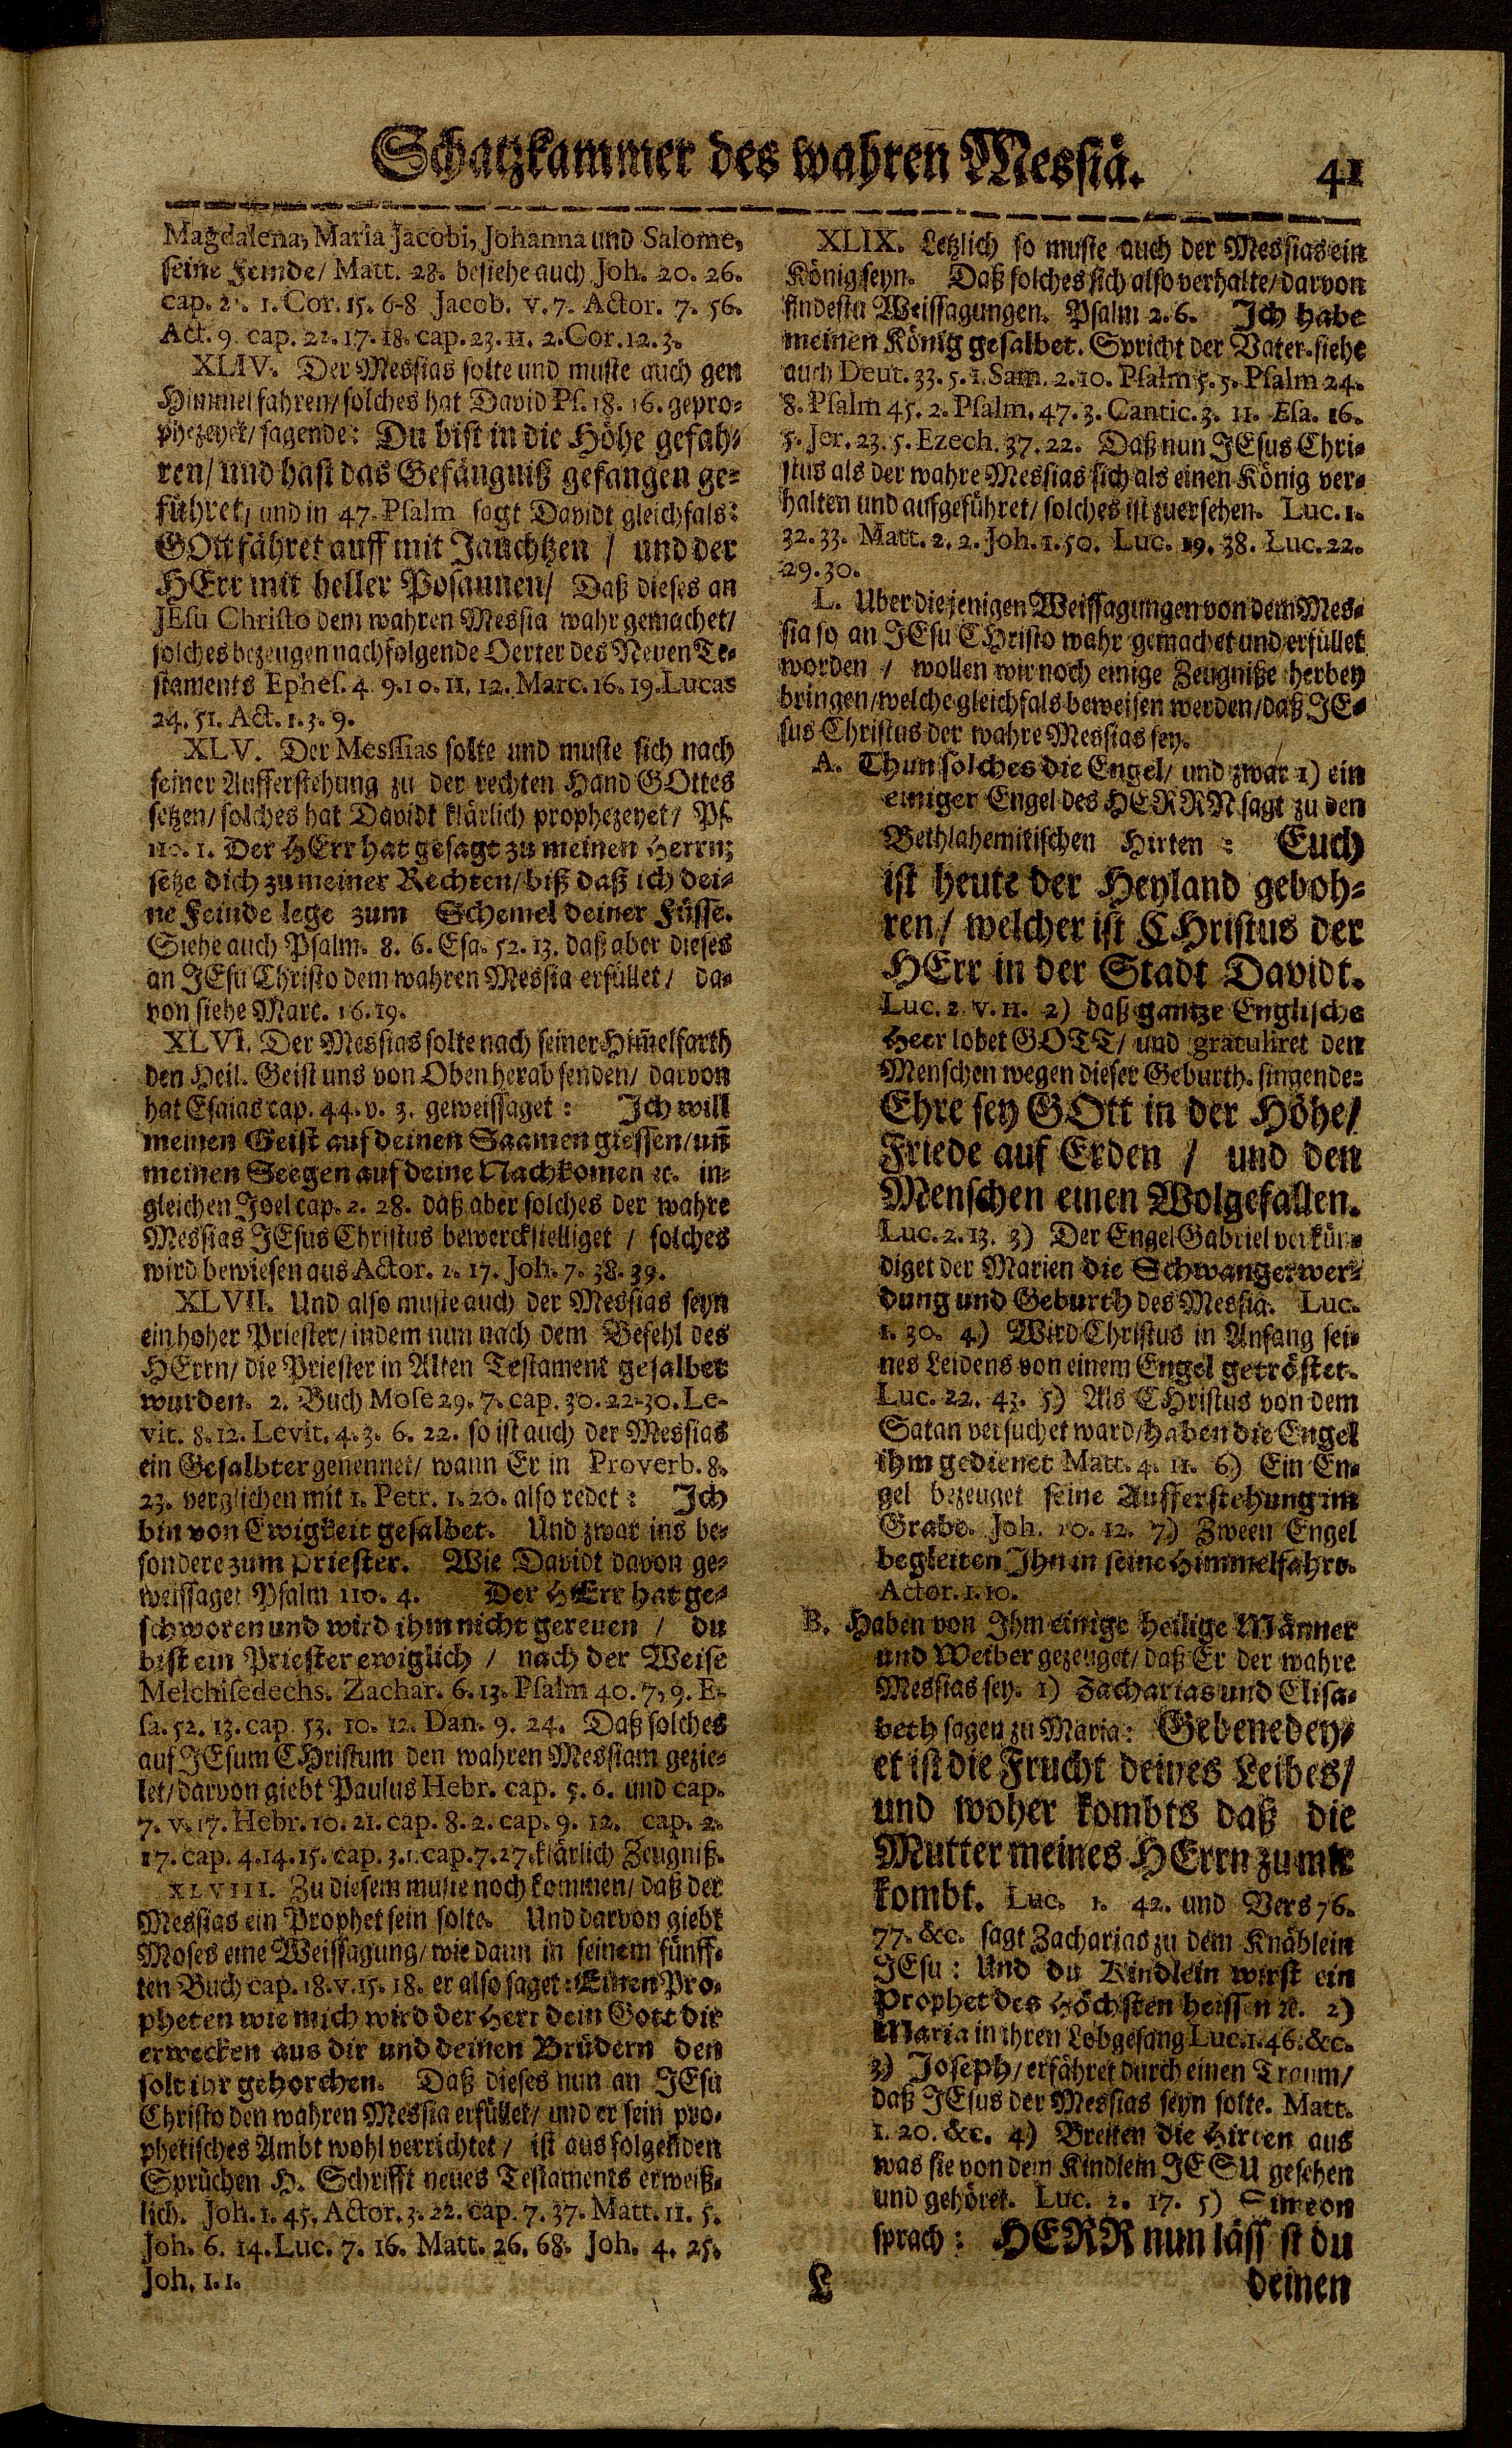 Schatzkammer des wahren Messiä. 41
Magdalena, Maria Jacobi, Johanna und Salome,
seine Feinde/ Matt. 28. besiehe auch Joh. 20. 26.
cap. 1. Cor. 15. 6-8 Jacob. v. 7. Actor. 7. 56.
Act. 9. cap. 22. 17. 18. cap. 23. 11. 2. Cor. 12. 3.
XLIV. Der Messias solte und muste auch gen
Himmel fahren/ solches hat David Ps. 18. 16. gepro-
phezeyet/ sagende: Du bist in die Höhe gefah-
ren/ und hast das Gefängniß gefangen ge-
führet, und in 47. Psalm sagt Davidt gleichfals:
GOtt fähret auff mit Jauchtzen / und der
HErr mit heller Posaunen/ Daß dieses an
JEsu Christo dem wahren Messia wahr gemachet/
solches bezeugen nachfolgende Oerter des Neuen Te-
staments Ephes. 4. 9. 10. 11. 12. Marc. 16. 19. Lucas
24. 51. Act. 1. 3. 9.
XLV. Der Messias solte und muste sich nach
seiner Aufferstehung zu der rechten Hand GOttes
setzen/ solches hat Davidt klärlich prophezeyet/ Ps.
110. 1. Der HErr hat gesagt zu meinen Herrn;
setze dich zu meiner Rechten/ biß daß ich dei-
ne Feinde lege zum Schemel deiner Füsse.
Siehe auch Psalm. 8. 6. Esa. 52. 13. daß aber dieses
an JEsu Christo dem wahren Messia erfüllet/ da-
von siehe Marc. 16. 19.
XLVI. Der Messias solte nach seiner Him̃elfarth
den Heil. Geist uns von Oben herab senden/ darvon
hat Esaias cap. 44. v. 3. geweissaget: Ich will
meinen Geist auf deinen Saamen giessen/ uñ
meinen Seegen auf deine Nachkomen ꝛc. in-
gleichen Joel cap. 2. 28. daß aber solches der wahre
Messias JEsus Christus bewerckstelliget / solches
wird bewiesen aus Actor. 2. 17. Joh. 7. 38. 39.
XLVII. Und also muste auch der Messias seyn
ein hoher Priester/ indem nun nach dem Befehl des
HErrn/ die Priester in Alten Testament gesalbet
wurden. 2. Buch Mose 29. 7. cap. 30. 22-30. Le-
vit. 8. 12. Levit. 4. 3. 6. 22. so ist auch der Messias
ein Gesalbter genennet/ wann Er in Proverb. 8.
23. verglichen mit 1. Petr. 1. 20. also redet: Ich
bin von Ewigkeit gesalbet. Und zwar ins be-
sondere zum Priester. Wie Davidt davon ge-
weissaget Psalm 110. 4. Der HErr hat ge-
schworen und wird ihm nicht gereuen / du
bist ein Priester ewiglich / nach der Weise
Melchisedechs. Zachar. 6. 13. Psalm 40. 7, 9. E-
sa. 52. 13. cap. 53. 10. 12. Dan. 9. 24. Daß solches
auf JEsum CHristum den wahren Messiam gezie-
let/ darvon giebt Paulus Hebr. cap. 5. 6. und cap.
7. v. 17. Hebr. 10. 21. cap. 8. 2. cap. 9. 12. cap. 2.
17. cap. 4. 14. 15. cap. 3. 1. cap. 7. 27. klärlich Zeugniß.
XLVIII. Zu diesem muste noch kommen/ daß der
Messias ein Prophet sein solte. Und darvon giebt
Moses eine Weissagung/ wie dann in seinem fünff-
ten Buch cap. 18. v. 15. 18. er also saget: Einen Pro-
pheten wie mich wird der Herr dein Gott dir
erwecken aus dir und deinen Brüdern den
solt ihr gehorchen. Daß dieses nun an JEsu
Christo den wahren Messia erfüllet/ und er sein pro-
phetisches Ambt wohl verrichtet / ist aus folgenden
Sprüchen H. Schrifft neues Testaments erweiß-
lich. Joh. 1. 45. Actor. 3. 22. cap. 7. 37. Matt. 11. 5.
Joh. 6. 14. Luc. 7. 16. Matt. 26. 68. Joh. 4. 25.
Joh. 1. 1.
XLIX. Letzlich so muste auch der Messias ein
König seyn. Daß solches sich also verhalte/ darvon
findestu Weissagungen. Psalm 2. 6. Ich habe
meinen König gesalbet. Spricht der Vater. siehe
auch Deut. 33. 5. 1. Sam. 2. 10. Psalm 5. 5. Psalm 24.
8. Psalm 45. 2. Psalm. 47. 3. Cantic. 3. 11. Esa. 16.
5. Jer. 23. 5. Ezech. 37. 22. Daß nun JEsus Chri-
stus als der wahre Messias sich als einen König ver-
halten und aufgeführet/ solches ist zuersehen. Luc. 1.
32. 33. Matt. 2. 2. Joh. 1. 50. Luc. 19. 38. Luc. 22.
29. 30.
L. Uber diejenigen Weissagungen von dem Mes-
sia so an JEsu CHristo wahr gemachet und erfüllet
worden / wollen wir noch einige Zeugniße herbey
bringen/ welche gleichfals beweisen werden/ daß JE-
sus Christus der wahre Messias sey.
A. Thun solches die Engel/ und zwar 1) ein
einiger Engel des HERRN sagt zu den
Bethlahemitischen Hirten: Euch
ist heute der Heyland geboh-
ren/ welcher ist CHristus der
HErr in der Stadt Davidt.
Luc. 2. v. 11. 2) daß gantze Englische
Heer lobet GOTT/ und gratuliret den
Menschen wegen dieser Geburth. singende:
Ehre sey GOtt in der Höhe/
Friede auf Erden / und den
Menschen einen Wolgefallen.
Luc. 2. 13. 3) Der Engel Gabriel verkün-
diget der Marien die Schwangerwer-
dung und Geburth des Messia. Luc.
1. 30. 4.) Wird Christus in Anfang sei-
nes Leidens von einem Engel getröstet.
Luc. 22. 43. 5.) Als CHristus von dem
Satan versuchet ward/ haben die Engel
ihm gedienet Matt. 4. 11. 6.) Ein En-
gel bezeuget seine Aufferstehung im
Grabe. Joh. 20. 12. 7.) Zween Engel
begleiten Ihn in seine Himmelfahrt.
Actor. 1. 10.
B. Haben von Ihm einige heilige Männer
und Weiber gezeuget/ daß Er der wahre
Messias sey. 1) Zacharias und Elisa-
beth sagen zu Maria: Gebenedey-
et ist die Frucht deines Leibes/
und woher kombts daß die
Mutter meines HErrn zu mir
kombt. Luc. 1. 42. und Vers 76.
77. &c. sagt Zacharias zu dem Knäblein
JEsu: Und du Kindlein wirst ein
Prophet des Höchsten heissen ꝛc. 2)
Maria in ihren Lobgesang Luc. 1. 46. &c.
3) Joseph/ erfähret durch einen Traum/
daß JEsus der Messias seyn solte. Matt.
1. 20. &c. 4) Breiten die Hirten aus
was sie von dem Kindlein JESU gesehen
und gehöret. Luc. 2. 17. 5) Simeon
sprach: HERR nun läss'st du
L deinen